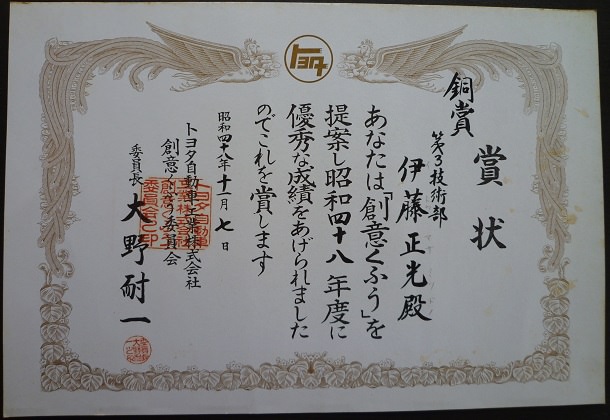 トヨタ
銅賞
賞状
第3技術部
伊藤正光殿
あなたは「創意くふう」を
提案し昭和四十八年度に
優秀な成績をあげられました
のでこれを賞します
昭和四十八年十一月七日
トヨタ自動車工業株式会社
創意くふう委員会
委員長 大野耐一